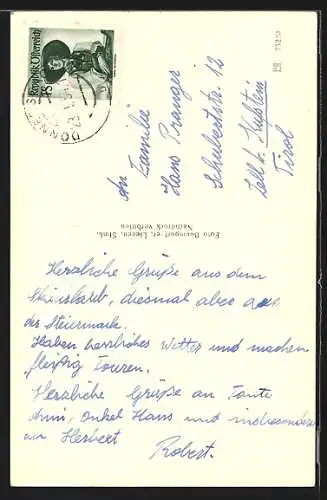 Republik Österreich
1S
DONNE
An Familie
Hans Pranger
Schubertstr. 12
Zell b. Kufstein
Tirol
Foto Baumgartner, Liezen, Stmk.
Nachdruck verboten
Herzliche Grüße aus dem
diesmal aber aus
der Steiermark.
Haben herrliches Wetter und machen
fleißig Touren.
Herzliche Grüße an Tante
Anni, Onkel Hans und insbesondere
an Herbert
Robert.